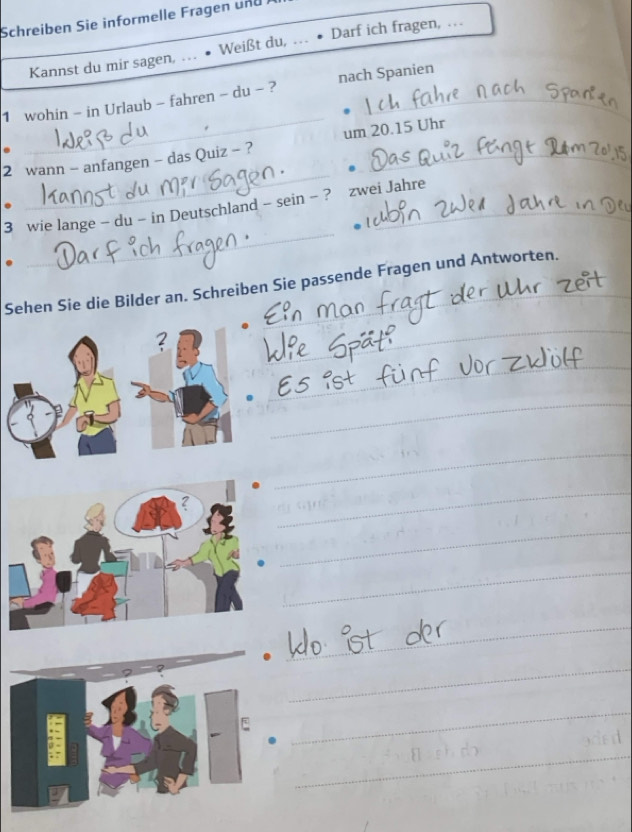 Schreiben Sie informelle Fragen und
Kannst du mir sagen, … • Weißt du, … • Darf ich fragen, …
1 wohin – in Urlaub – fahren – du – ?
nach Spanien
Weiß du
Ich fahre nach Spanien
2 wann – anfangen – das Quiz – ?
um 20.15 Uhr
Kannst du mir sagen.
Das Quiz fängt um 20.15
3 wie lange – du – in Deutschland – sein – ?
zwei Jahre
Darf ich fragen.
Jahre in
Sehen Sie die Bilder an. Schreiben Sie passende Fragen und Antworten.
Ein man fragt der Uhr zeit
Wie Spät?
Es ist fünf vor zwölf
?
?
Wo ist der
? ?